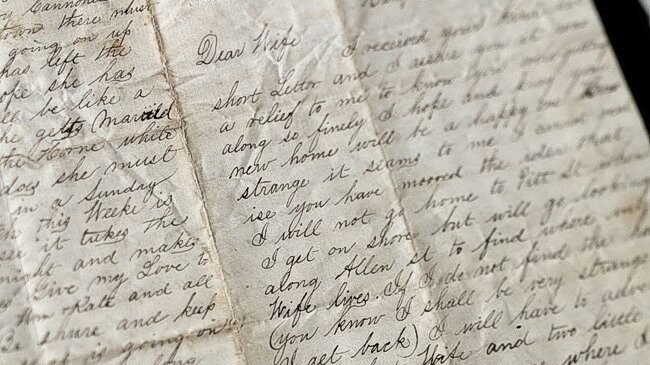 Cannone
town there must
going on up
has left the
ope she has
ll be like a
he gets married
the Horne white
does she must
in a Sunday
this Weeke is
see it takes the
night and makes
Give my Love to
Kate and all
Be shure and keep
is going on
Dear Wife I received your kind
short Letter and I assure you it was
a relief to me to know you were
along so finely I hope and
new home will be a happy
strange it seams to me I cannot
ise you have mooved the
I will not go home to Pitt St when
I get on shore but will go looking
along Allen St to find where my
Wife lives. If I do not find the
(you know I shall be very strange
I get back) I will have to adver
Wife and two little
where I